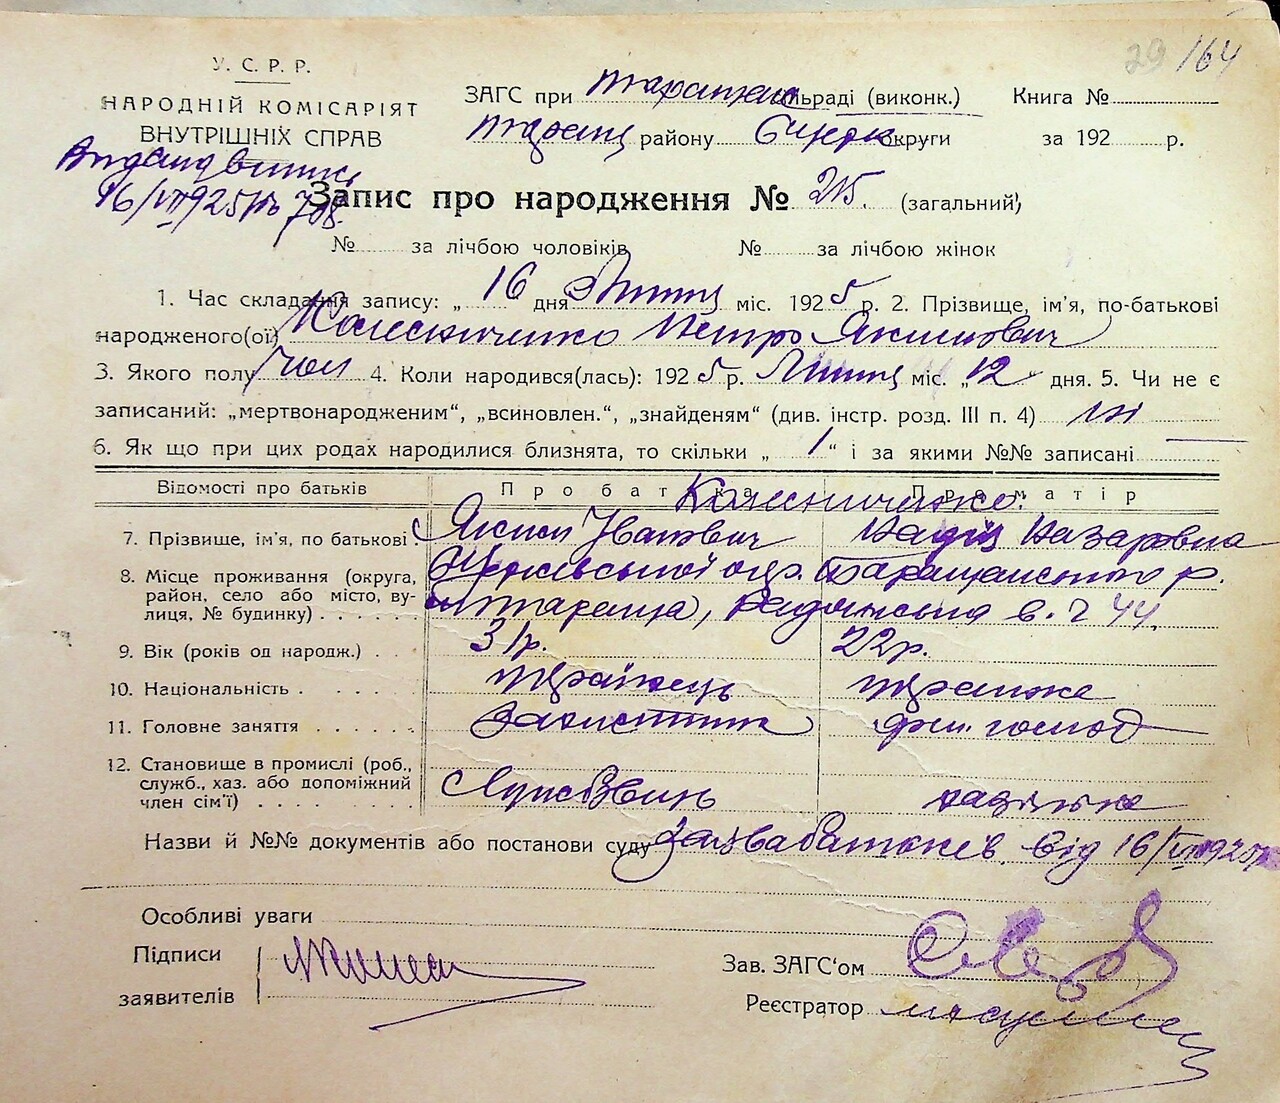 29 164
У. С. Р. Р.
НАРОДНІЙ КОМІСАРІЯТ
ВНУТРІШНІХ СПРАВ
ЗАГС при Таращан сільраді (виконк.) Книга №
Таращ району округи за 192 р.
16/VII 1925 р
Запис про народження № 215. (загальний)
№ за лічбою чоловіків № за лічбою жінок
1. Час складання запису: „ 16 дня Липня міс. 1925 р. 2. Прізвище, ім'я, по-батькові
народженого(ої) Колесниченко Петро Якимович
3. Якого полу чол 4. Коли народився(лась): 1925 р. Липня міс. „12 дня. 5. Чи не є
записаний: „мертвонародженим", „всиновлен.", „знайденям" (див. інстр. розд. III п. 4) ні
6. Як що при цих родах народилися близнята, то скільки „ 1 " і за якими №№ записані
Відомості про батьків Про батька Про матір
Колесниченко
7. Прізвище, ім'я, по батькові Яким Іванович Надія Назаровна
8. Місце проживання (округа, район, село або місто, вулиця, № будинку) округ. Таращанського р.
м Тараща, Радянська в. ч 44.
9. Вік (років од народж.) 31 р. 22 р.
10. Національність українець українка
11. Головне заняття дом. господ
12. Становище в промислі (роб., служб., хаз. або допоміжний член сім'ї) Службовець
Назви й №№ документів або постанови суду Заява батьків. від 16/VII 1925 р
Особливі уваги
Підписи
заявителів
Зав. ЗАГС'ом
Реєстратор